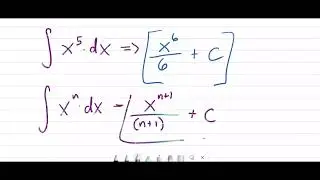 ∫ x⁵·dx => [x⁶/6 + C]
∫ xⁿ·dx - [xⁿ⁺¹/(n+1) + C